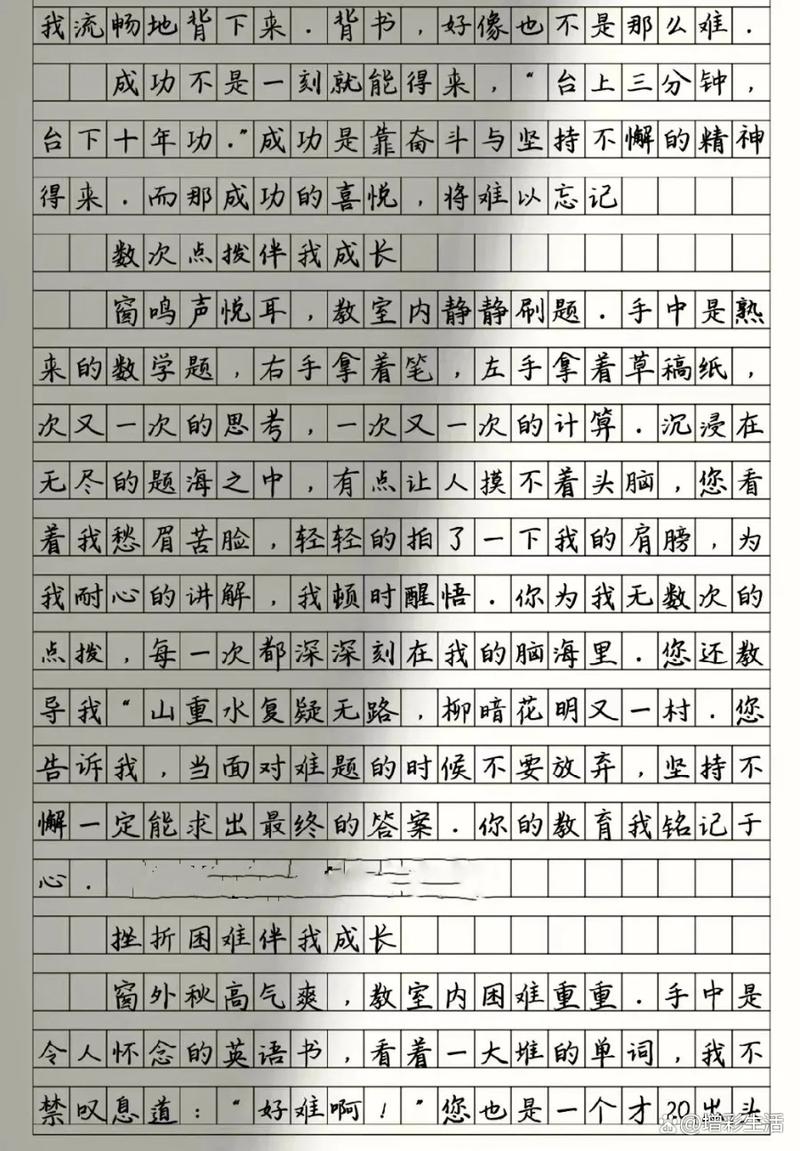 我流畅地背下来．背书，好像也不是那么难．
成功不是一刻就能得来，“台上三分钟，
台下十年功．”成功是靠奋斗与坚持不懈的精神
得来．而那成功的喜悦，将难以忘记
数次点拨伴我成长
窗鸣声悦耳，教室内静静刷题．手中是熟
来的数学题，右手拿着笔，左手拿着草稿纸，
次又一次的思考，一次又一次的计算．沉浸在
无尽的题海之中，有点让人摸不着头脑，您看
着我愁眉苦脸，轻轻的拍了一下我的肩膀，为
我耐心的讲解，我顿时醒悟．你为我无数次的
点拨，每一次都深深刻在我的脑海里．您还教
导我“山重水复疑无路，柳暗花明又一村．您
告诉我，当面对难题的时候不要放弃，坚持不
懈一定能求出最终的答案．你的教育我铭记于
心．
挫折困难伴我成长
窗外秋高气爽，教室内困难重重．手中是
令人怀念的英语书，看着一大堆的单词，我不
禁叹息道：“好难啊！”您也是一个才20出头
增彩生活